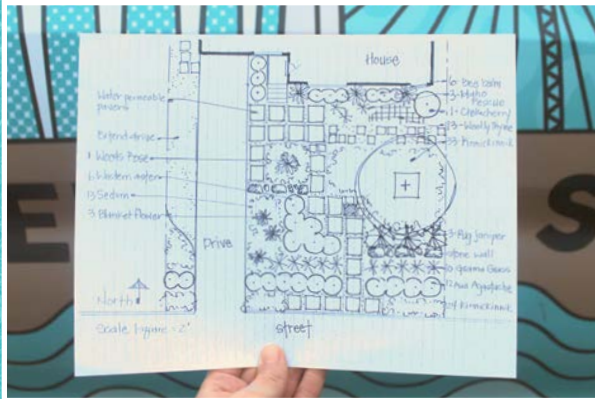 House
Water permeable
pavers
Extend drive
1 Woods Rose
Western
13 Sedum
3 Blanket flower
Drive
North
Scale 1
street
6 Bee balm
3 Idaho
Fescue
1 - Chokecherry
23 - Woolly thyme
Kinnickinnik
3 - Pug juniper
stone wall
Grama Grass
Agastache
Kinnickinnik
S